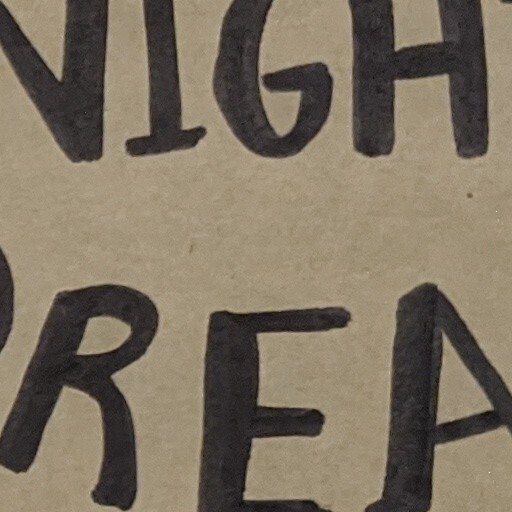 NIGH
REA